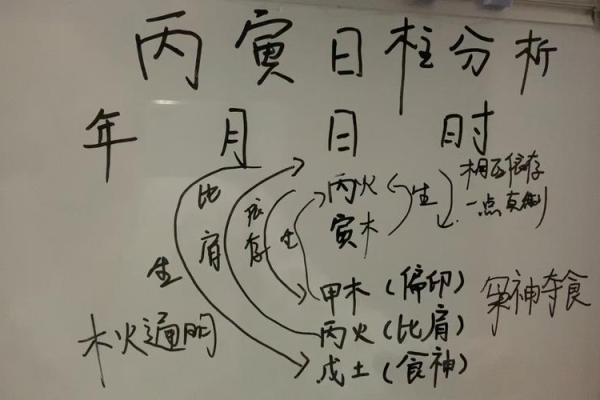 丙寅日柱分析
年 月 日 时
比肩
依存
生
生
丙火
寅木
生
相互依存
一点真
甲木（偏印）
丙火（比肩）
戊土（食神）
枭神夺食
木火通明